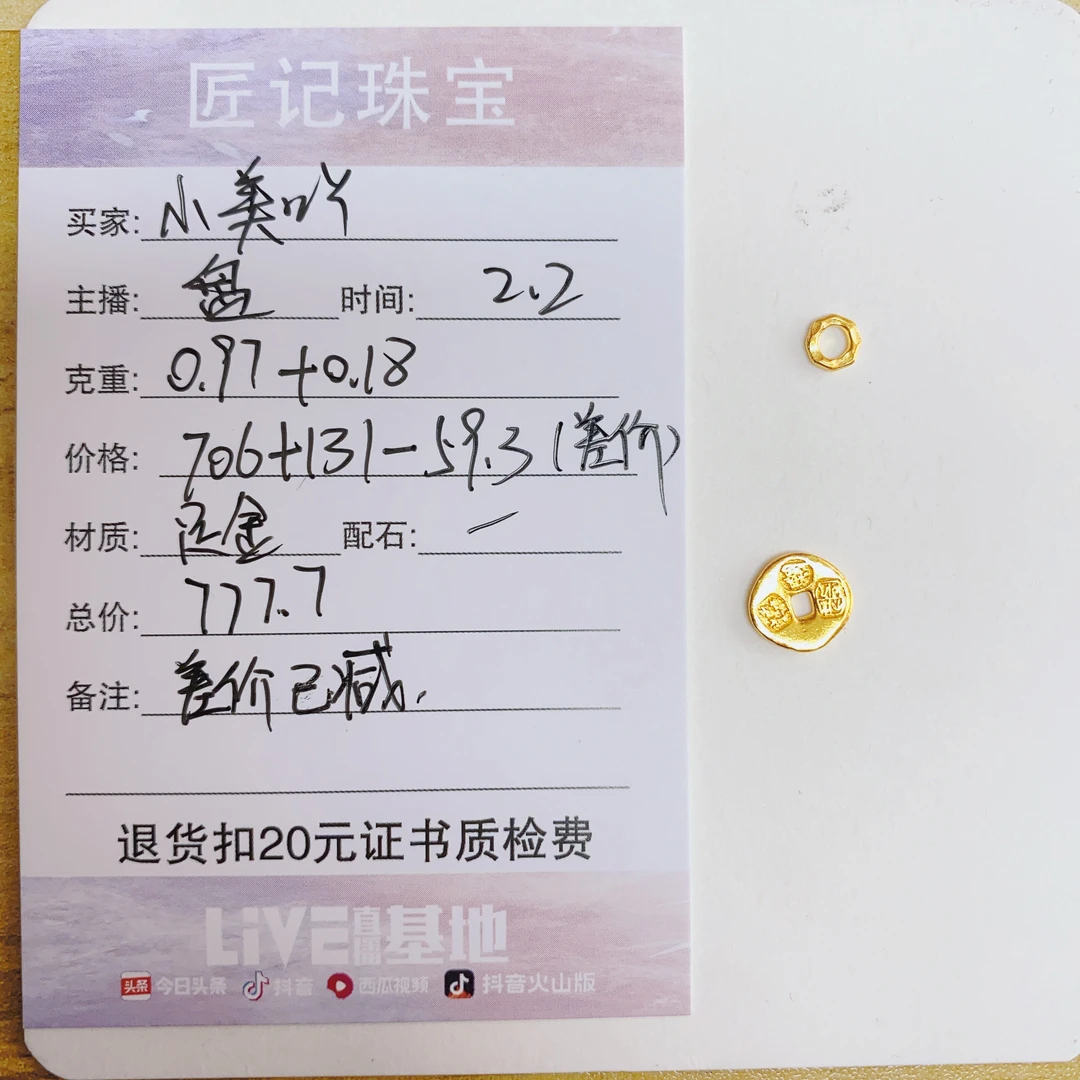 匠记珠宝
买家: 小美吖
主播: 盘 时间: 2.2
克重: 0.97+0.18
价格: 706+131-59.3(差价)
材质: 足金 配石: 一
总价: 777.7
备注: 差价已减.
退货扣20元证书质检费
LiVE直播基地
头条 今日头条 抖音 西瓜视频 抖音火山版